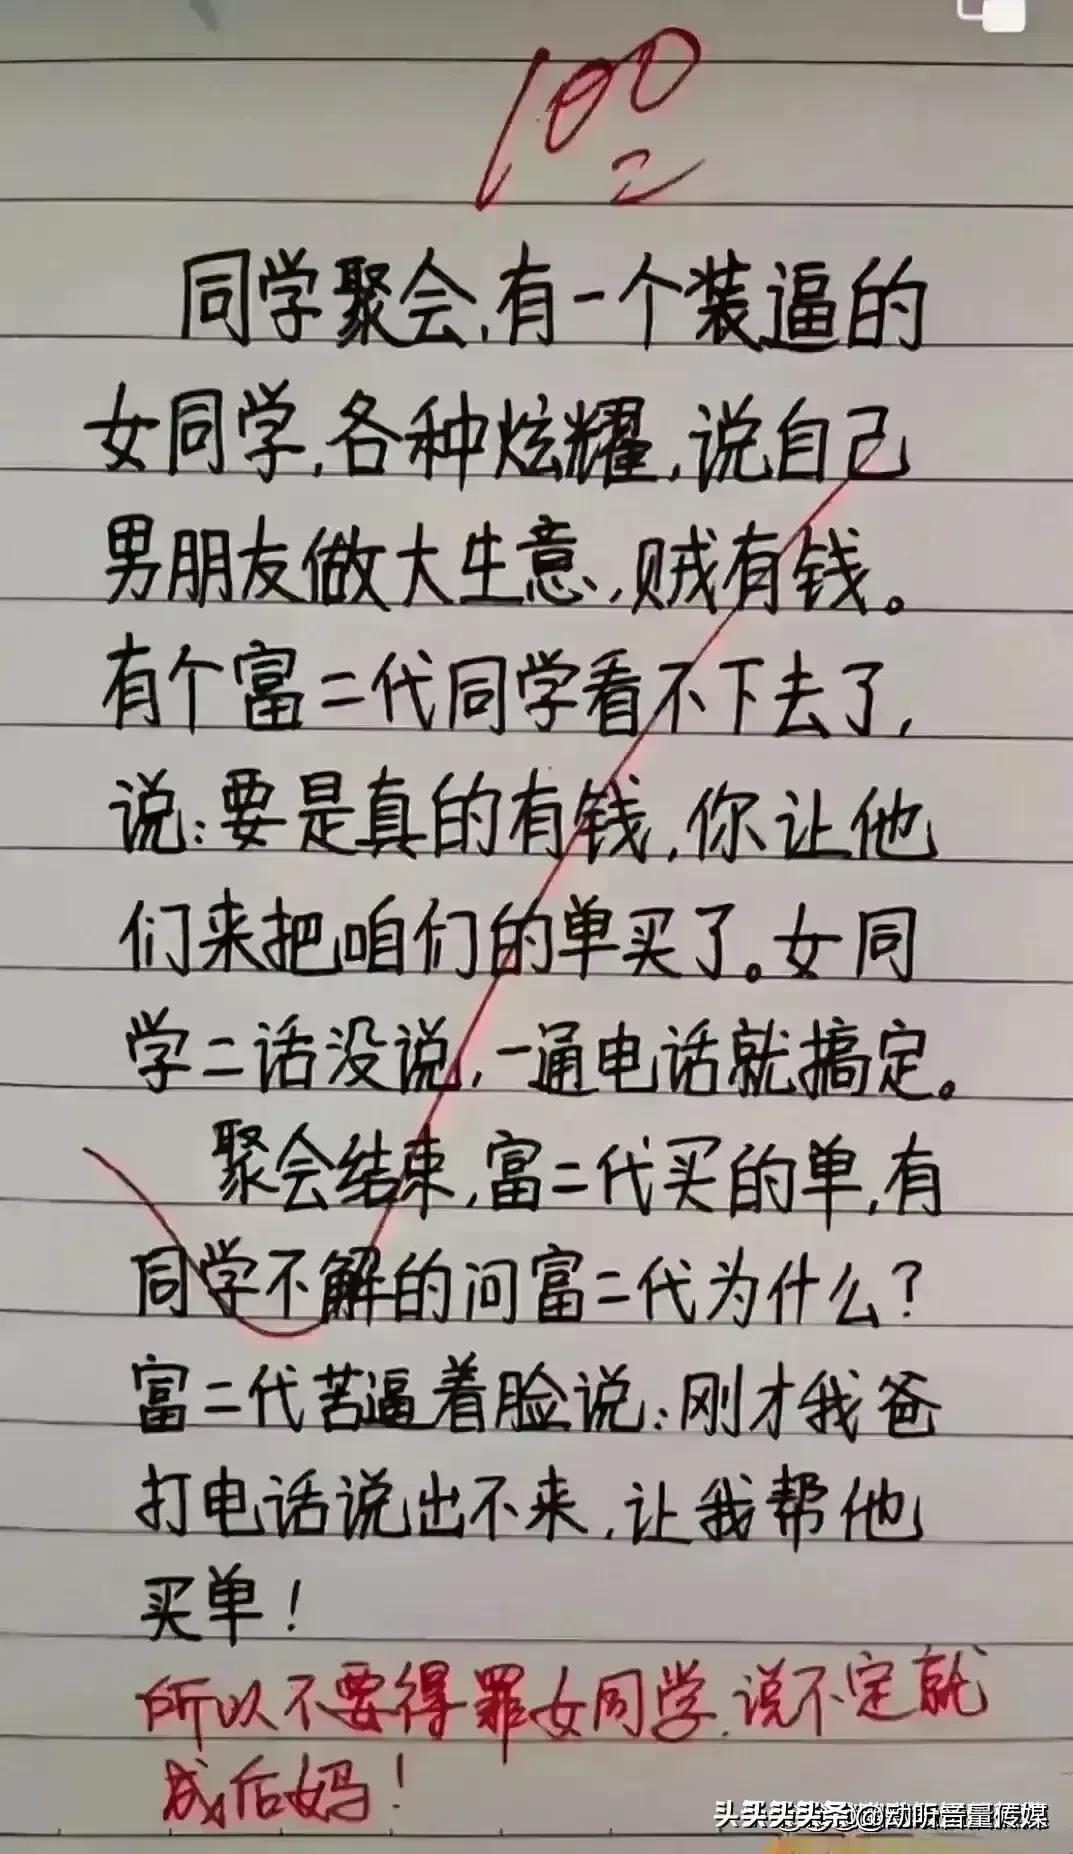 100
同学聚会,有一个装逼的
女同学,各种炫耀,说自己
男朋友做大生意,贼有钱。
有个富二代同学看不下去了,
说:要是真的有钱,你让他
们来把咱们的单买了。女同
学二话没说,一通电话就搞定。
聚会结束,富二代买的单,有
同学不解的问富二代为什么?
富二代苦逼着脸说:刚才我爸
打电话说出不来,让我帮他
买单!
所以不要得罪女同学,说不定就
成后妈!
头条 @动听音量传媒